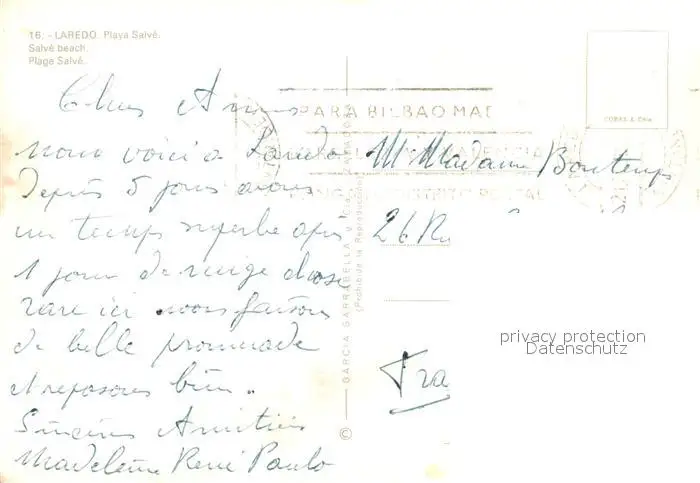 16. - LAREDO. Playa Salvé.
Salvé beach.
Plage Salvé.
Chers Amis
nous voici a Laredo
Depuis 5 jours avons
un temps superbe après
1 jour de neige chose
rare ici nous faisons
de belle promenade
et reposons bien.
Sincères Amitiés
Madeleine René Paulo
© GARCIA GARRABELLA y Cía. ZARAGOZA
(Prohibida la Reproducción)
PARA BILBAO MAD
POSTAL
COBAS & Cnia
M Madame Bontemps
26 Ru
Fra
privacy protection
Datenschutz